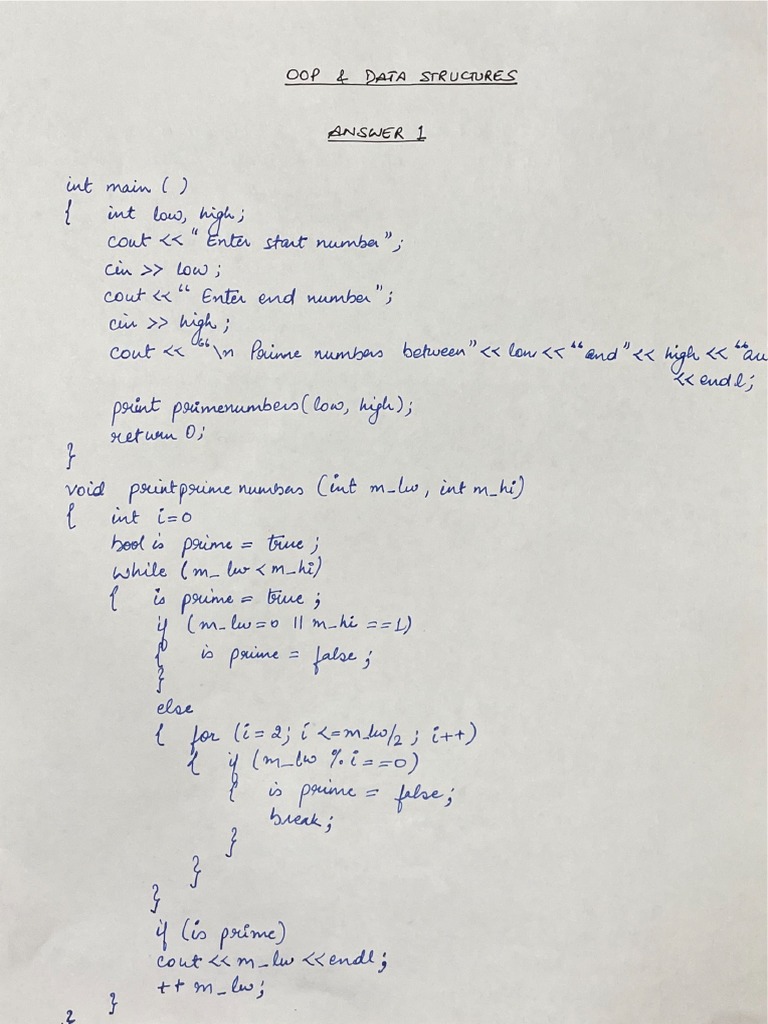 OOP & DATA STRUCTURES
ANSWER 1
int main ( )
{ int low, high;
cout << "Enter start number";
cin >> low;
cout << "Enter end number";
cin >> high;
cout << "\n Prime numbers between" << low << "and" << high << "
<< endl;
print primenumbers (low, high);
return 0;
}
void printprime numbers (int m_lw, int m_hi)
{ int i=0
bool is prime = true;
while (m_lw < m_hi)
{ is prime = true;
if (m_lw=0 || m_hi ==1)
{ is prime = false;
}
else
{ for (i=2; i <=m_lw/2; i++)
{ if (m_lw % i ==0)
{ is prime = false;
break;
}
}
}
if (is prime)
cout << m_lw << endl;
++ m_lw;
}
}